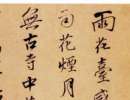 雨花臺感
雨花煙月
無古寺中